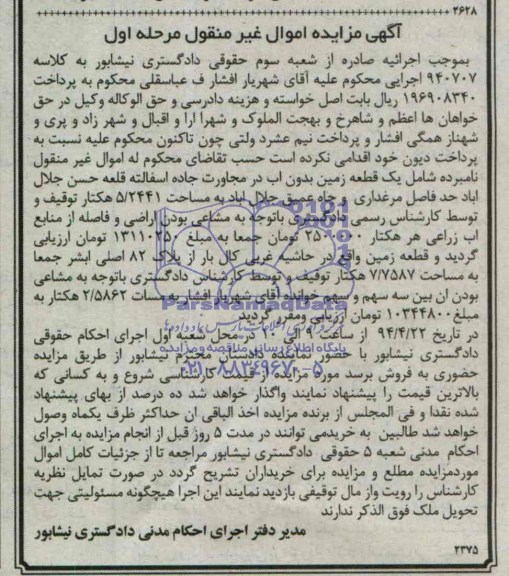 ۲۶۲۸
آگهی مزایده اموال غیر منقول مرحله اول
بموجب اجرائیه صادره از شعبه سوم حقوقی دادگستری نیشابور به کلاسه
۹۴۰۷۰۷ اجرایی محکوم علیه آقای شهریار افشار ف عباسقلی محکوم به پرداخت
۱۹۶۹۰۸۳۴۰ ریال بابت اصل خواسته و هزینه دادرسی و حق الوکاله وکیل در حق
خواهان ها اعظم و شاهرخ و بهجت الملوک و شهرا ارا و اقبال و شهر زاد و پری و
شهناز همگی افشار و پرداخت نیم عشرد ولتی چون تاکنون محکوم علیه نسبت به
پرداخت دیون خود اقدامی نکرده است حسب تقاضای محکوم له اموال غیر منقول
نامبرده شامل یک قطعه زمین بدون اب در مجاورت جاده اسفالته قلعه حسن جلال
اباد حد فاصل مرغداری و چاه عمیق جلال اباد به مساحت ۵/۲۴۴۱ هکتار توقیف و
توسط کارشناس رسمی دادگستری باتوجه به مشاعی بودن اراضی و فاصله از منابع
اب زراعی هر هکتار ۲۵۰۰۰۰۰ تومان جمعا به مبلغ ۱۳۱۱۰۲۵۰ تومان ارزیابی
گردید و قطعه زمین واقع در حاشیه غربی کال بار از پلاک ۸۲ اصلی ابشر جمعا
به مساحت ۷/۷۵۸۷ هکتار توقیف و توسط کارشناس دادگستری باتوجه به مشاعی
بودن ان بین سه سهم و سهم خوانده آقای شهریار افشار به مسات ۲/۵۸۶۲ هکتار به
مبلغ ۱۰۳۴۴۸۰۰ تومان ارزیابی ومقرر گردید
در تاریخ ۹۴/۴/۲۲ از ساعت ۹ الی ۱۰ در محل شعبه اول اجرای احکام حقوقی
دادگستری نیشابور با حضور نماینده دادستان محترم نیشابور از طریق مزایده
حضوری به فروش برسد مورد مزایده از قیمت کارشناسی شروع و به کسانی که
بالاترین قیمت را پیشنهاد نمایند واگذار خواهد شد ده درصد از بهای پیشنهاد
شده نقدا و فی المجلس از برنده مزایده اخذ الباقی ان حداکثر ظرف یکماه وصول
خواهد شد طالبین به خریدمی توانند در مدت ۵ روز قبل از انجام مزایده به اجرای
احکام مدنی شعبه ۵ حقوقی دادگستری نیشابور مراجعه تا از جزئیات کامل اموال
موردمزایده مطلع و مزایده برای خریداران تشریح گردد در صورت تمایل نظریه
کارشناس را رویت واز مال توقیفی بازدید نمایند این اجرا هیچگونه مسئولیتی جهت
تحویل ملک فوق الذکر ندارند
مدیر دفتر اجرای احکام مدنی دادگستری نیشابور
۲۳۷۵
ParsNamadData
پایگاه اطلاع رسانی مناقصه و مزایده
۰۲۱-۸۸۳۴۹۶۷۰-۵